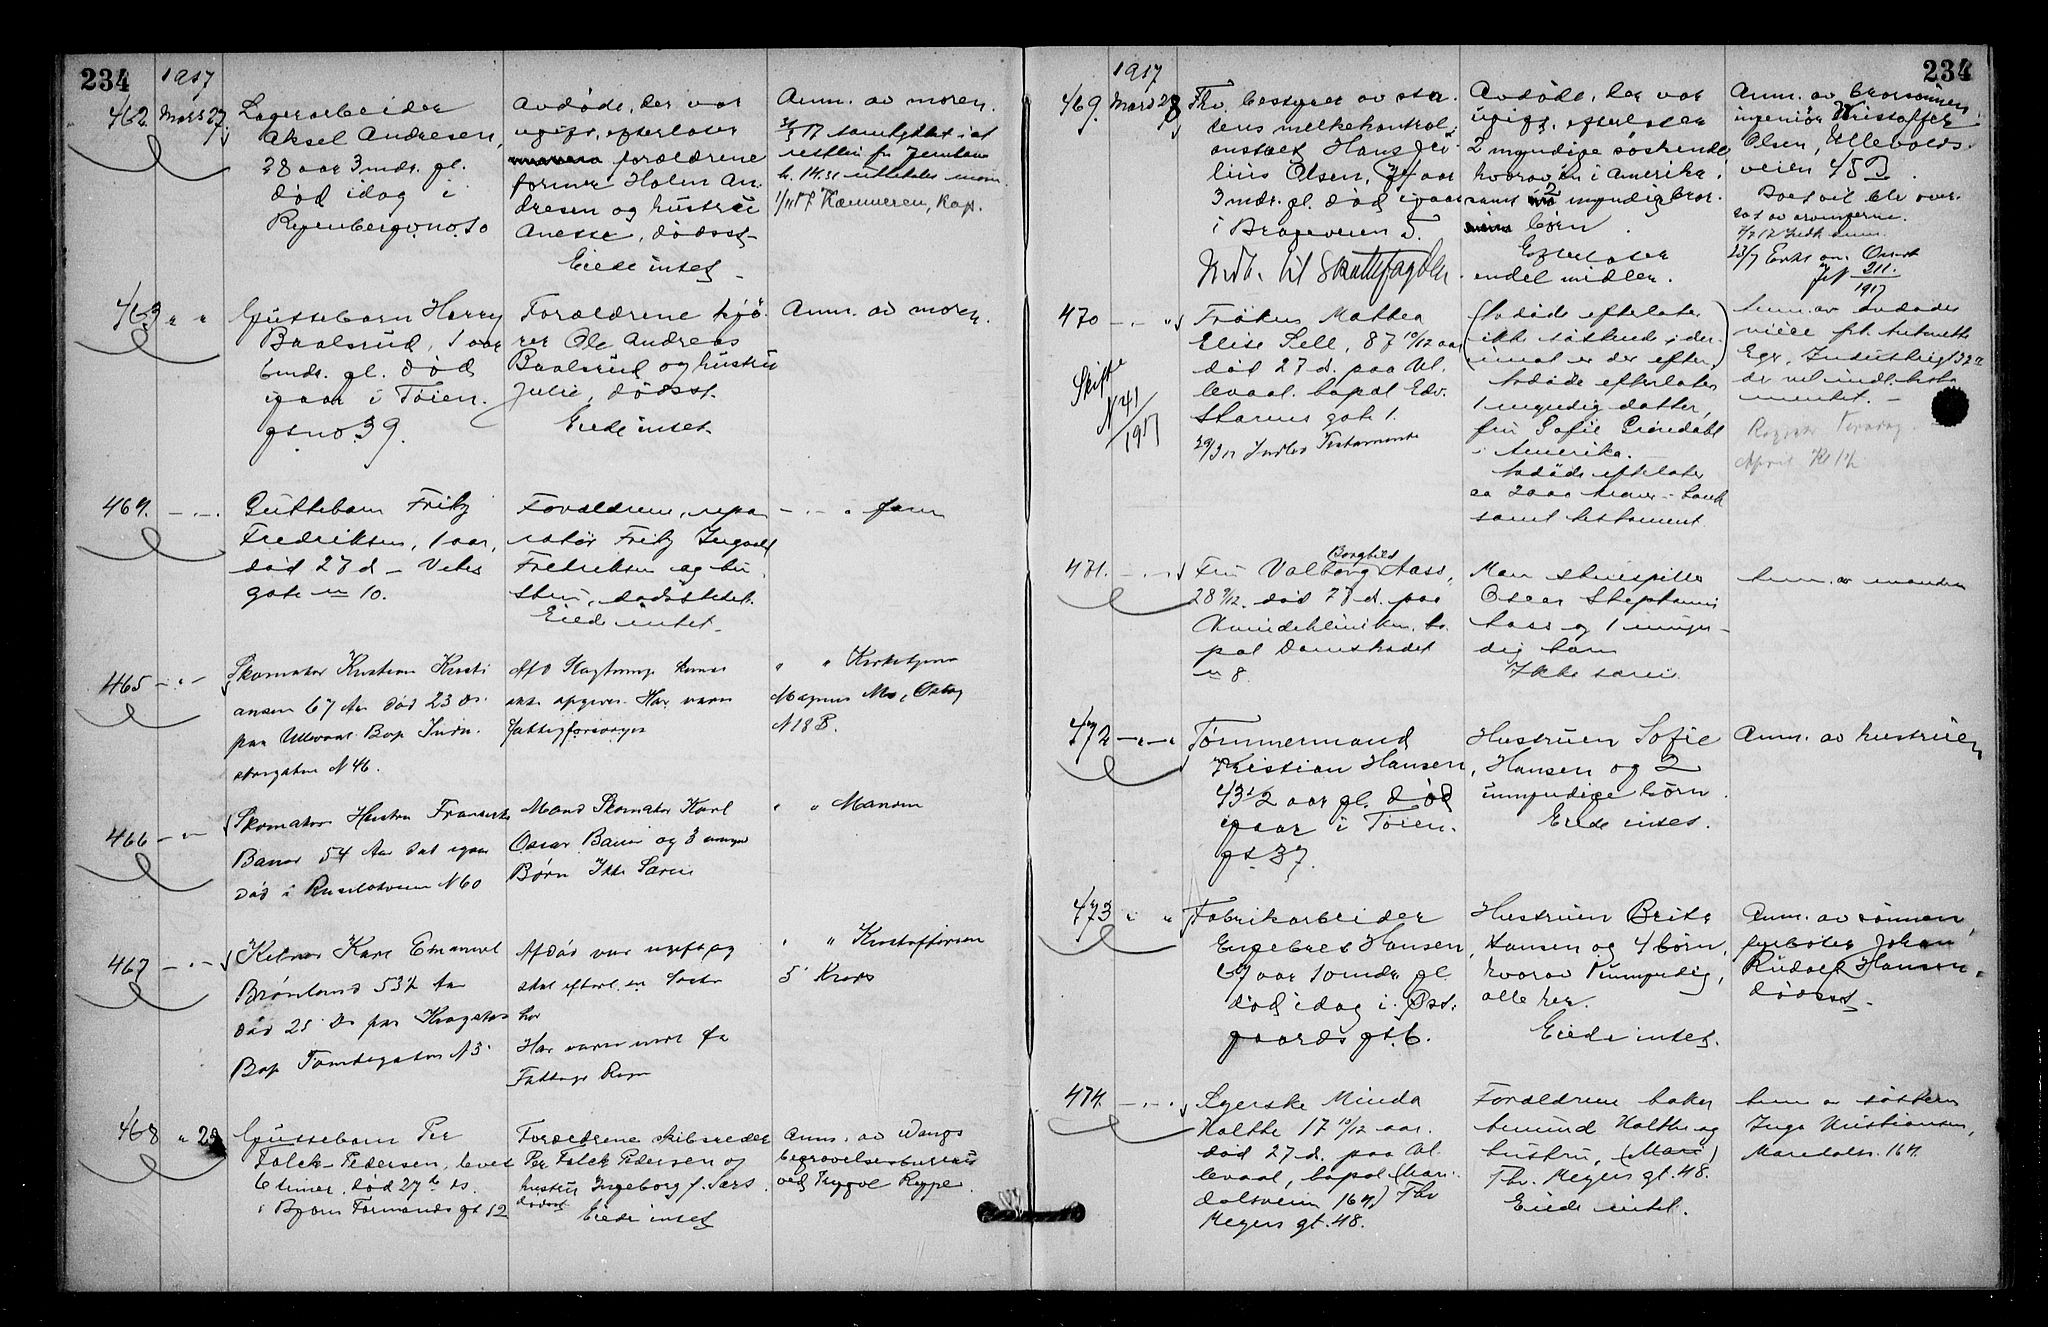 234
1917
462. Mars 27
Lagerarbeider
Aksel Andresen,
28 aar 3 mdr. gl.
død idag i
Rypenbergg. no. 10
Avdøde, der var
ugift, efterlater
forældrene
former Holm An-
dresen og hustru
Anette, dødsst.
Eiede intet
Anm. av moren.
Kæmneren, Rap.
463 " "
Guttebarn Harry
Baalsrud, 1 aar
6 mdr. gl. død
igaar i Tøien-
gt. no 39.
Forældrene kjø-
rer Ole Andreas
Baalsrud og hustru
Julie, dødsst.
Eiede intet.
Anm. av moren.
464. - " -
Guttebarn Fritz
Fredriksen, 1 aar,
død 27 d - Vibes
gate no 10.
Forældrene, repa-
ratør Fritz Ingvald
Fredriksen og hu-
stru, dødsstedet.
Eiede intet.
- " - " faren
465 - " -
Skomaker Kristian Kristi
ansen 67 Aar død 23 ds.
paa Ullevaal Bop Indu-
strigaten N 46.
Afd Slegtninge kunde
ikke opgives. Har været
fattigforsørget
" " Kirketjener
Magnus Mo,
N 18 B.
466 - " -
Skomaker Hustru Fransiska
Baner 54 Aar død igaar
Død i Ruseløkveien N 60
Mand Skomaker Karl
Oscar Baner og 3 umynd
Børn Ikke Særeie
" " Manden
467 - " -
Kelner Karl Emanuel
Brønlund 53 ½ Aar
død 25 Ds paa Krogstøt
Bop Tomtegaten N 5
Afdød var ugift og
skal efterl. en Søster
her
Har været under fa
Fattige
" " Kristoffersen
5 Krods
468 " 28
Guttebarn Per
Falck-Pedersen, levet
6 timer, død 27de ds.
i Bjørn Farmands gt 12
Forældrene skibsreder
Per Falck Pedersen og
hustru Ingeborg f. Sars
dødsst.
Eiede intet
Anm. av Wangs
begravelsesbureau
ved Trygve Rype.
234
1917
469. Mars 28
Fhv. bestyrer av sta-
dens melkekontrol-
anstalt Hans Ju-
lius Olsen, 74 aar
3 mdr. gl. død igaar
i Brageveien 5.
Indb. til Skattefogden.
Avdøde, der var
ugift, efterlater
2 myndige søskende
hvorav én i Amerika,
samt 2 myndige bror-
børn.
Efterlater
endel midler.
Anm. av brorsønnen,
ingeniør Kristoffer
Olsen, Ullevolds-
veien 45 D.
Boet vil bli over-
tat av arvingerne.
211
1917
470 - " - "
Skifte
N 41
1917
Frøken Mathea
Elise Sell, 87 10/12 aar
død 27 d. paa Ul-
levaal. bopal Edv.
Storms gate 1.
29/3 17 Indlev Testamente
(Avdøde efterlater
ikke søskende, der-
imot er der efter)
Avdøde efterlater
1 myndig datter,
fru Sofie Grøndahl
i Amerika.
Avdøde efterlater
ca 2000 kroner i bank
samt testament.
Anm. av avdødes
niece frk. Antonette
Eger, Industrigt 32
der vil indl. testa-
mentet.
April Kl 12
471. - " -
Fru Valborg Borghild Aass,
28 9/12. død 27 d. paa
Kvindekliniken. bo-
pal Damstrædet
no 8.
Man skuespiller
Oscar Stephanus
Aass og 1 umyn-
dig barn
Ikke særeie.
Anm. av manden
472 - " - "
Tømmermand
Kristian Hansen,
43 ½ aar gl. død
igaar i Tøien-
gt. 37.
Hustruen Sofie
Hansen og 2
umyndige børn.
Eiede intet.
Anm. av hustruen
473 " "
Fabrikarbeider
Engebret Hansen,
69 aar 10 mdr. gl.
død idag i Øst-
gaards gt. 6.
Hustruen Brite
Hansen og 4 børn,
hvorav 1 umyndig,
alle her.
Eiede intet.
Anm. av sønnen,
fyrbøter Johan
Rudolf Hansen,
dødsst.
474. - " -
Syerske Minda
Holthe 17 10/12 aar.
død 27 d. paa Ul-
levaal, bopal (Mari-
dalsveien 164) Thv
Meyers gt. 48.
Forældrene baker
Amund Holthe og
hustru, (Mari)
Thv. Meyers gt. 48.
Eiede intet.
Anm. av søsteren
Inga Kristiansen,
Maridalsv. 164.